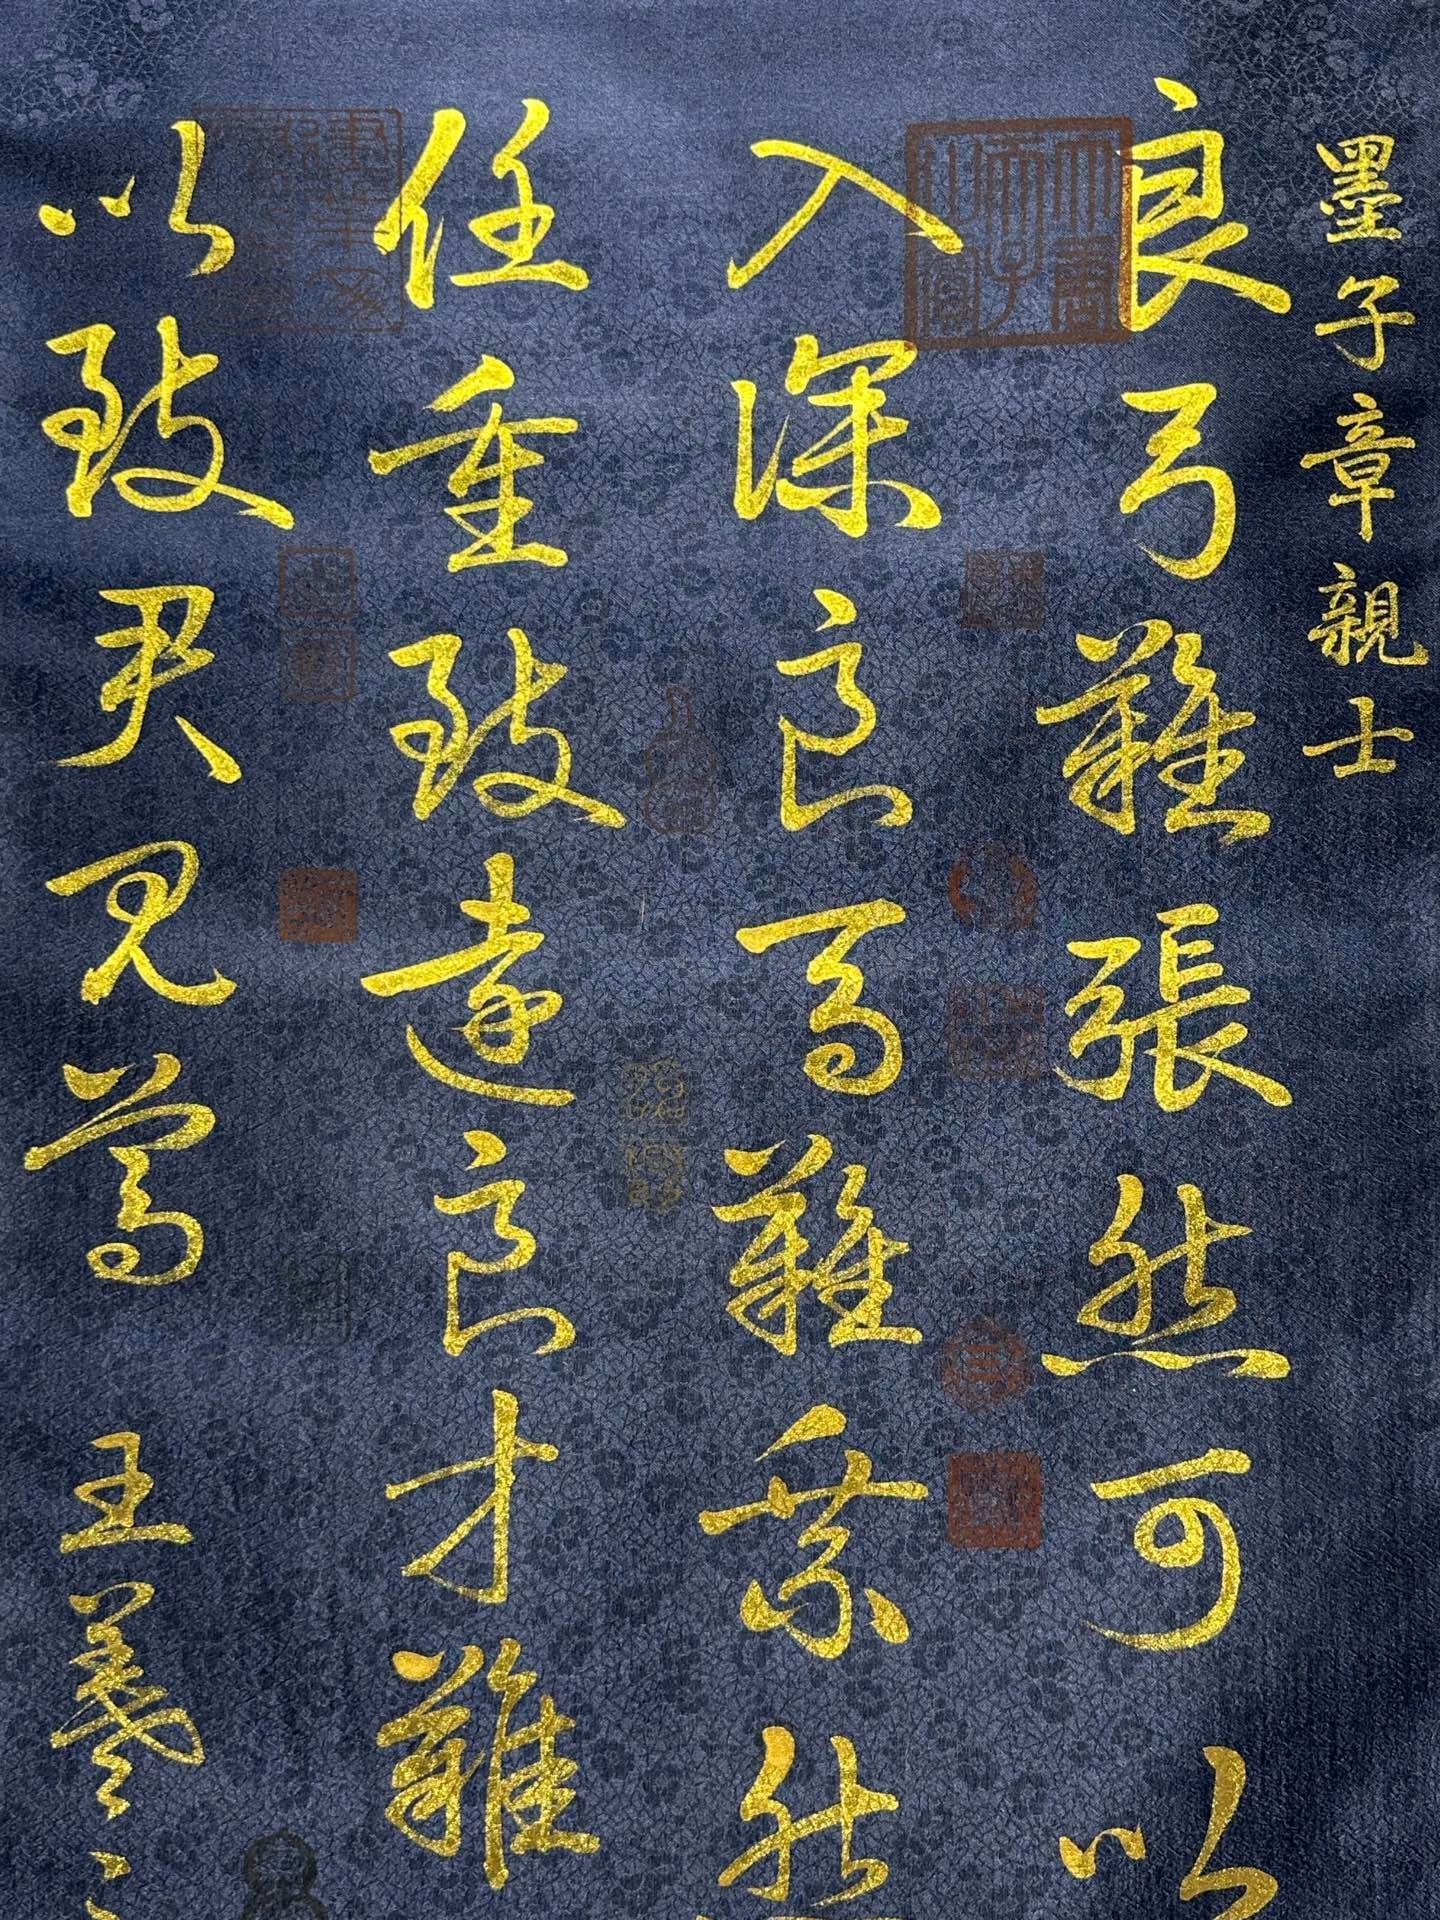 墨子章親士
良弓難張然可以
入深良馬難乘然
任重致遠良才難
以致君見尊 王羲之